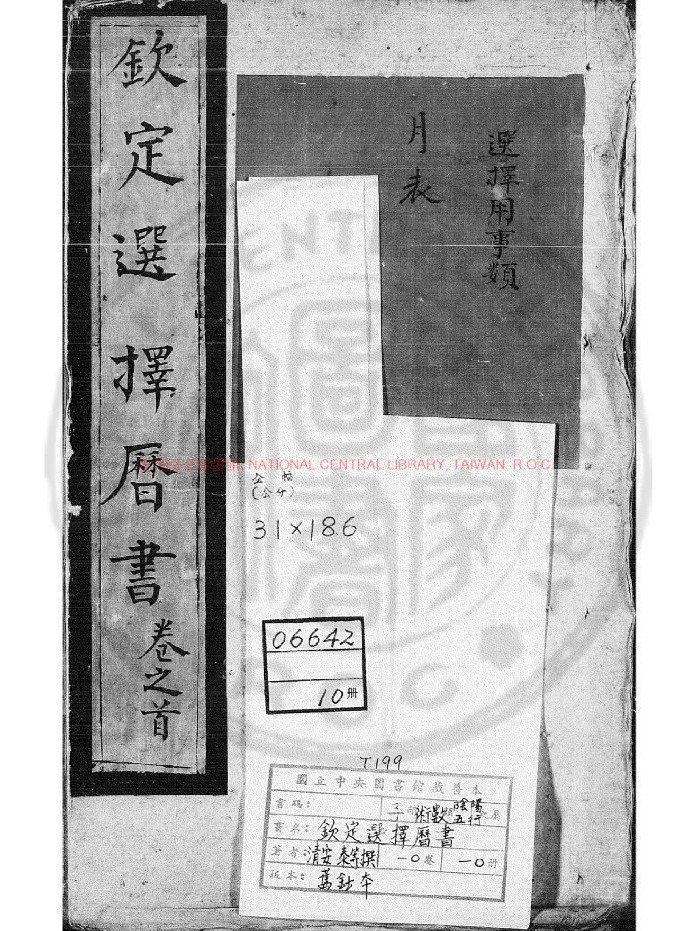 欽定選擇曆書卷之首
選擇用事類
月表
NATIONAL CENTRAL LIBRARY, TAIWAN R.O.C
全幅
(公分)
31×18.6
06642
10册
T199
國立中央圖書館藏善本
書碼:
子部 術數類 陰陽五行 之屬
書名: 欽定選擇曆書
著者: 清安泰等撰 一〇卷 一〇册
板本: 舊鈔本